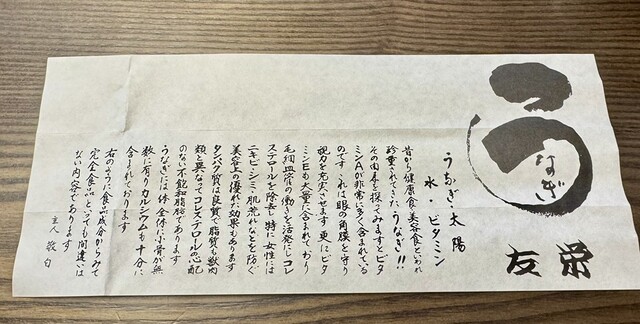 うなぎ
栄友
うなぎ・太陽
水・ビタミン
昔から健康食美容食といわれ
珍重されてきたうなぎ!!
その内素を探ってみますとビタ
ミンAが非常に多く含まれている
のです これは眼の角膜を守り
視力を充実させます 更にビタ
ミンEも大量に含まれており
毛細血管の働きを活発にしコレ
ステロールを除去し特に女性には
ニキビ・シミ・肌荒れなどを防ぐ
美容上の優れた効果もあります
タンパク質は良質で脂質も獣肉
類と異なってコレステロールの心配
のない不飽和脂肪であります
うなぎには体全体に小骨が無
数に有りカルシウムも十分に
含まれております
右のように食品成分からみて
完全食品といっても間違いは
ない内容であります
主人敬白